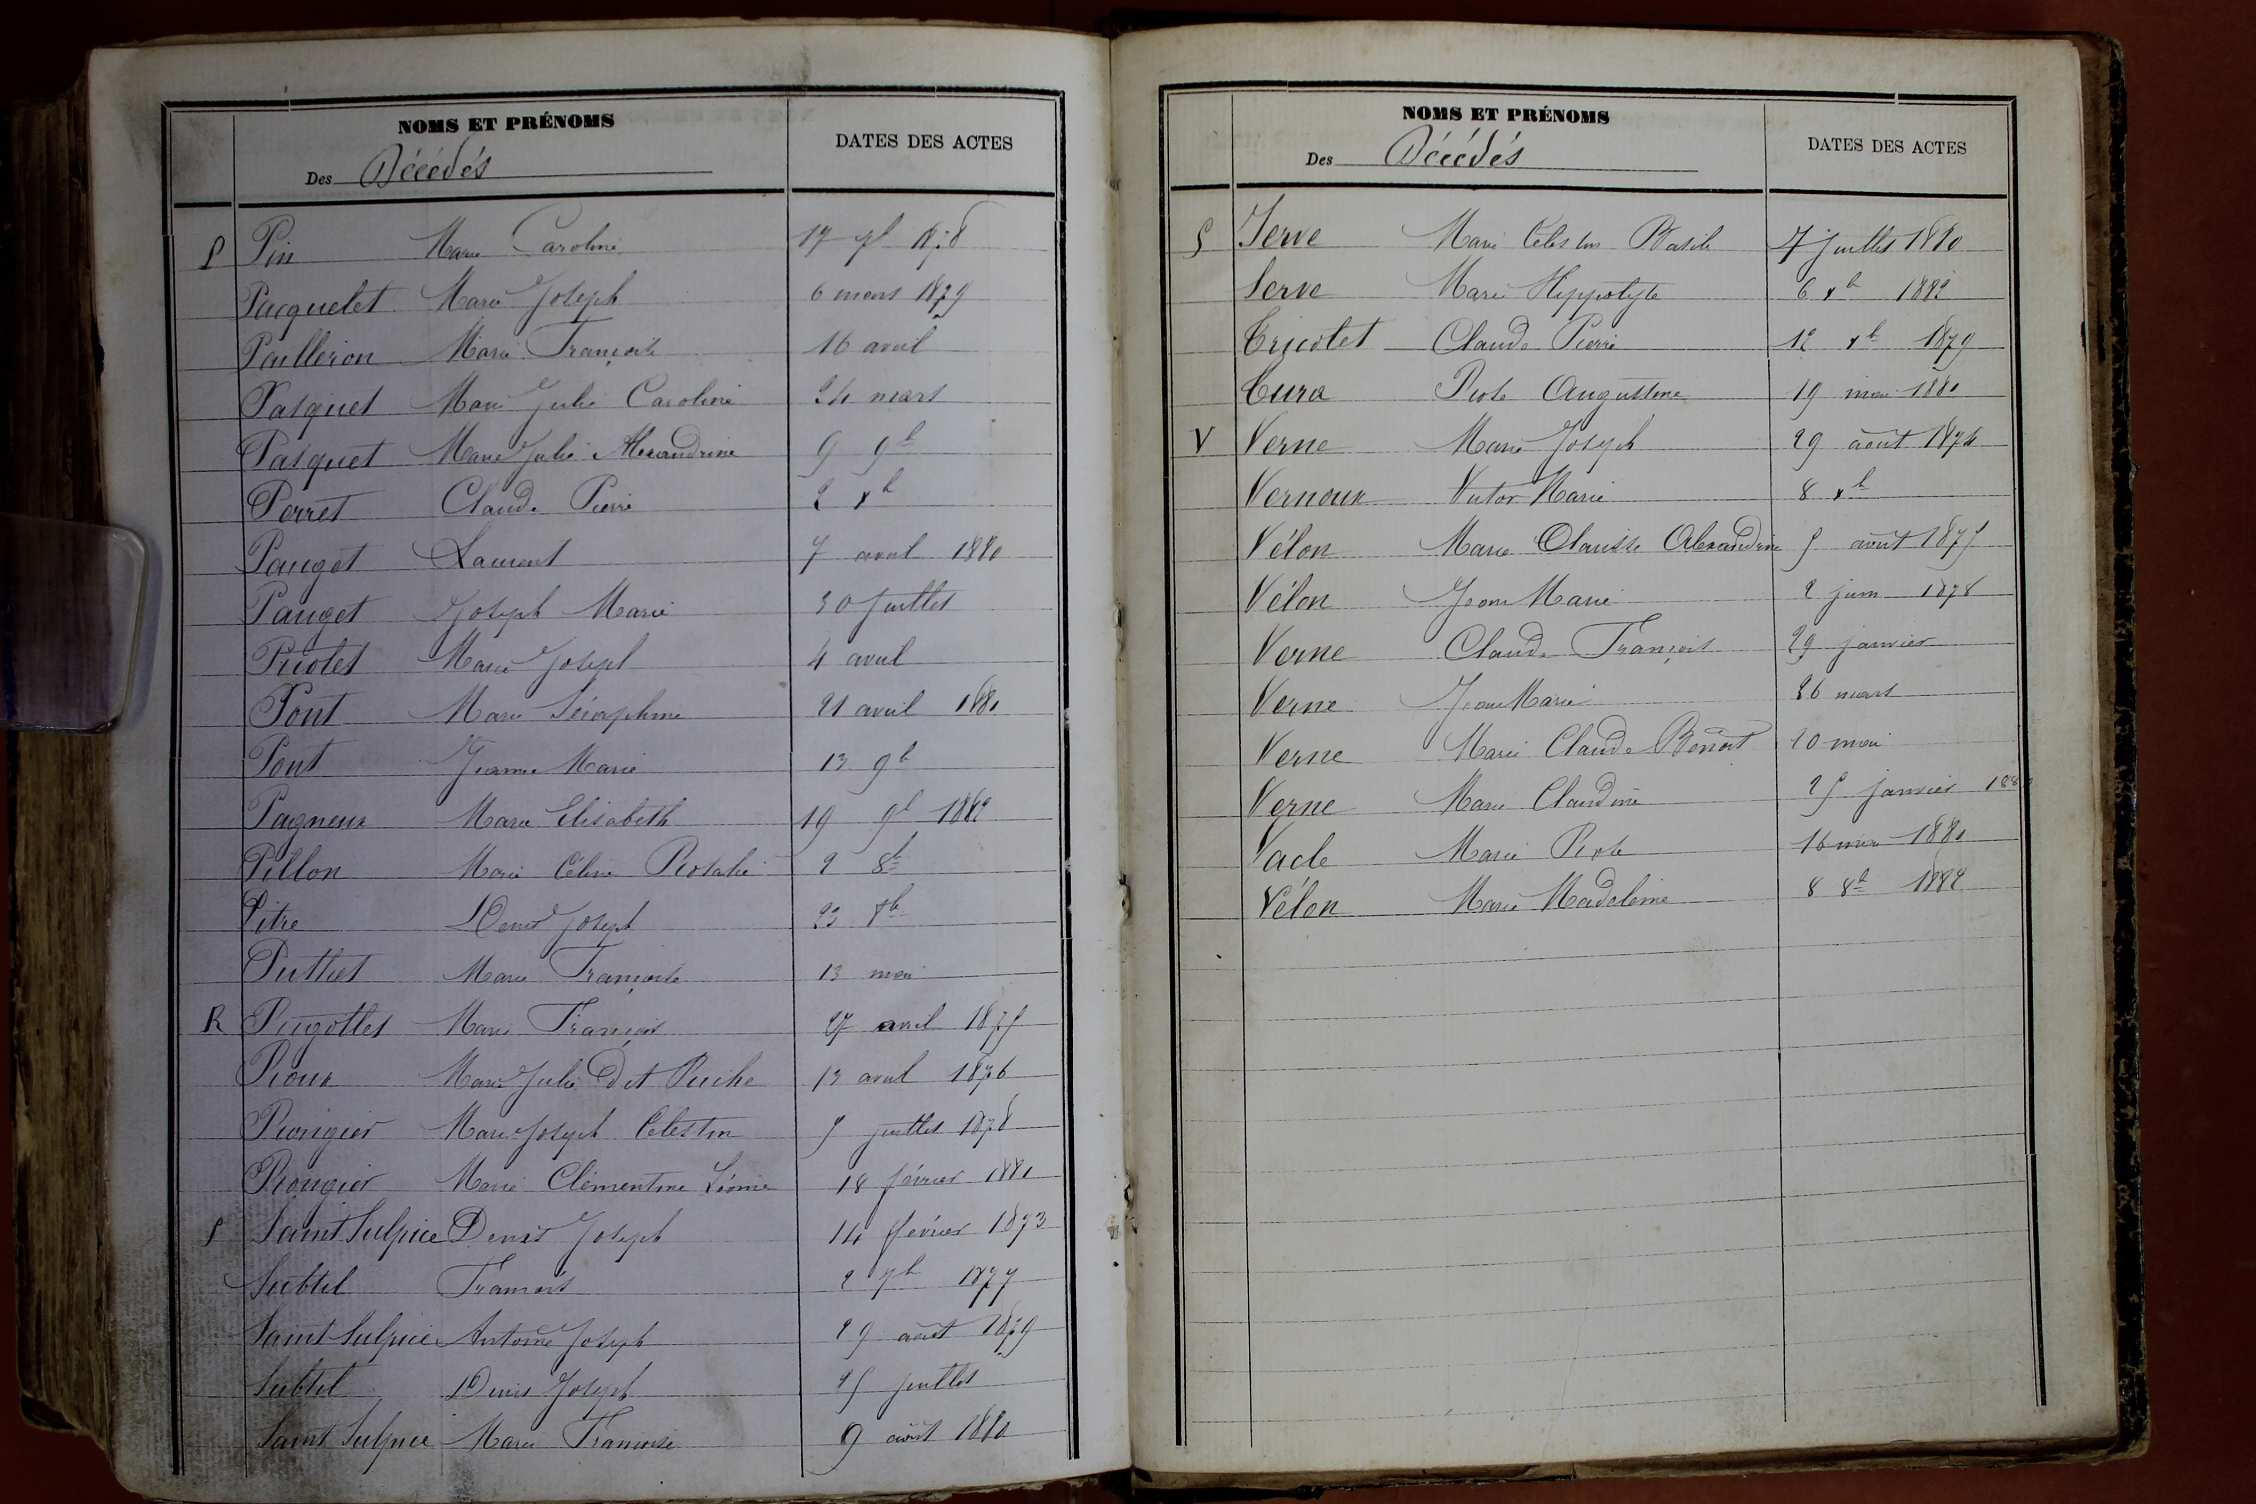 NOMS ET PRÉNOMS
DATES DES ACTES
Des Décédés
P Pin Marie Caroline 17 7b 1878
Pacquelet Marie Joseph 6 mars 1879
Pailleron Marie Françoise 16 avril
Pasquet Marie Julie Caroline 24 mars
Pasquet Marie Julie Alexandrine 9 9b
Perret Claude Pierre 2 xb
Pauget Laurent 7 avril 1880
Pauget Joseph Marie 30 juillet
Picolet Marie Joseph 4 avril
Pont Marie Séraphine 21 avril 1881
Pont Jeanne Marie 13 9b
Pagneux Marie Elisabeth 19 9b 1882
Pillon Marie Céline Rosalie 2 8b
Pitre Denis Joseph 23 8b
Puthet Marie Françoise 13 mai
R Rigottet Marie François 27 avril 1875
Roux Marie Julie dit Puche 13 avril 1876
Rongier Marie Joseph Celestin 5 juillet 1878
Rongier Marie Clémentine Léonie 18 février 1881
S Saint Sulpice Denis Joseph 14 février 1873
Subtil François 2 7b 1877
Saint Sulpice Antoine Joseph 29 août 1879
Subtil Denis Joseph 25 juillet
Saint Sulpice Marie Françoise 9 août 1880
NOMS ET PRÉNOMS
DATES DES ACTES
Des Décédés
S Serve Marie Celestin Basile 7 juillet 1880
Serve Marie Hippolyte 6 xb 1882
Tricotet Claude Pierre 12 xb 1879
Tura Rose Augustine 19 mai 1881
V Verne Marie Joseph 29 août 1874
Vernoux Victor Marie 8 xb
Vélon Marie Clarisse Alexandrine 5 août 1875
Vélon Jean Marie 2 juin 1878
Verne Claude François 29 janvier
Verne Jean Marie 26 mars
Verne Marie Claude Benoit 10 mai
Verne Marie Claudine 25 janvier
Vacle Marie Rose 16 mai 1881
Vélon Marie Madeleine 8 8b 1882